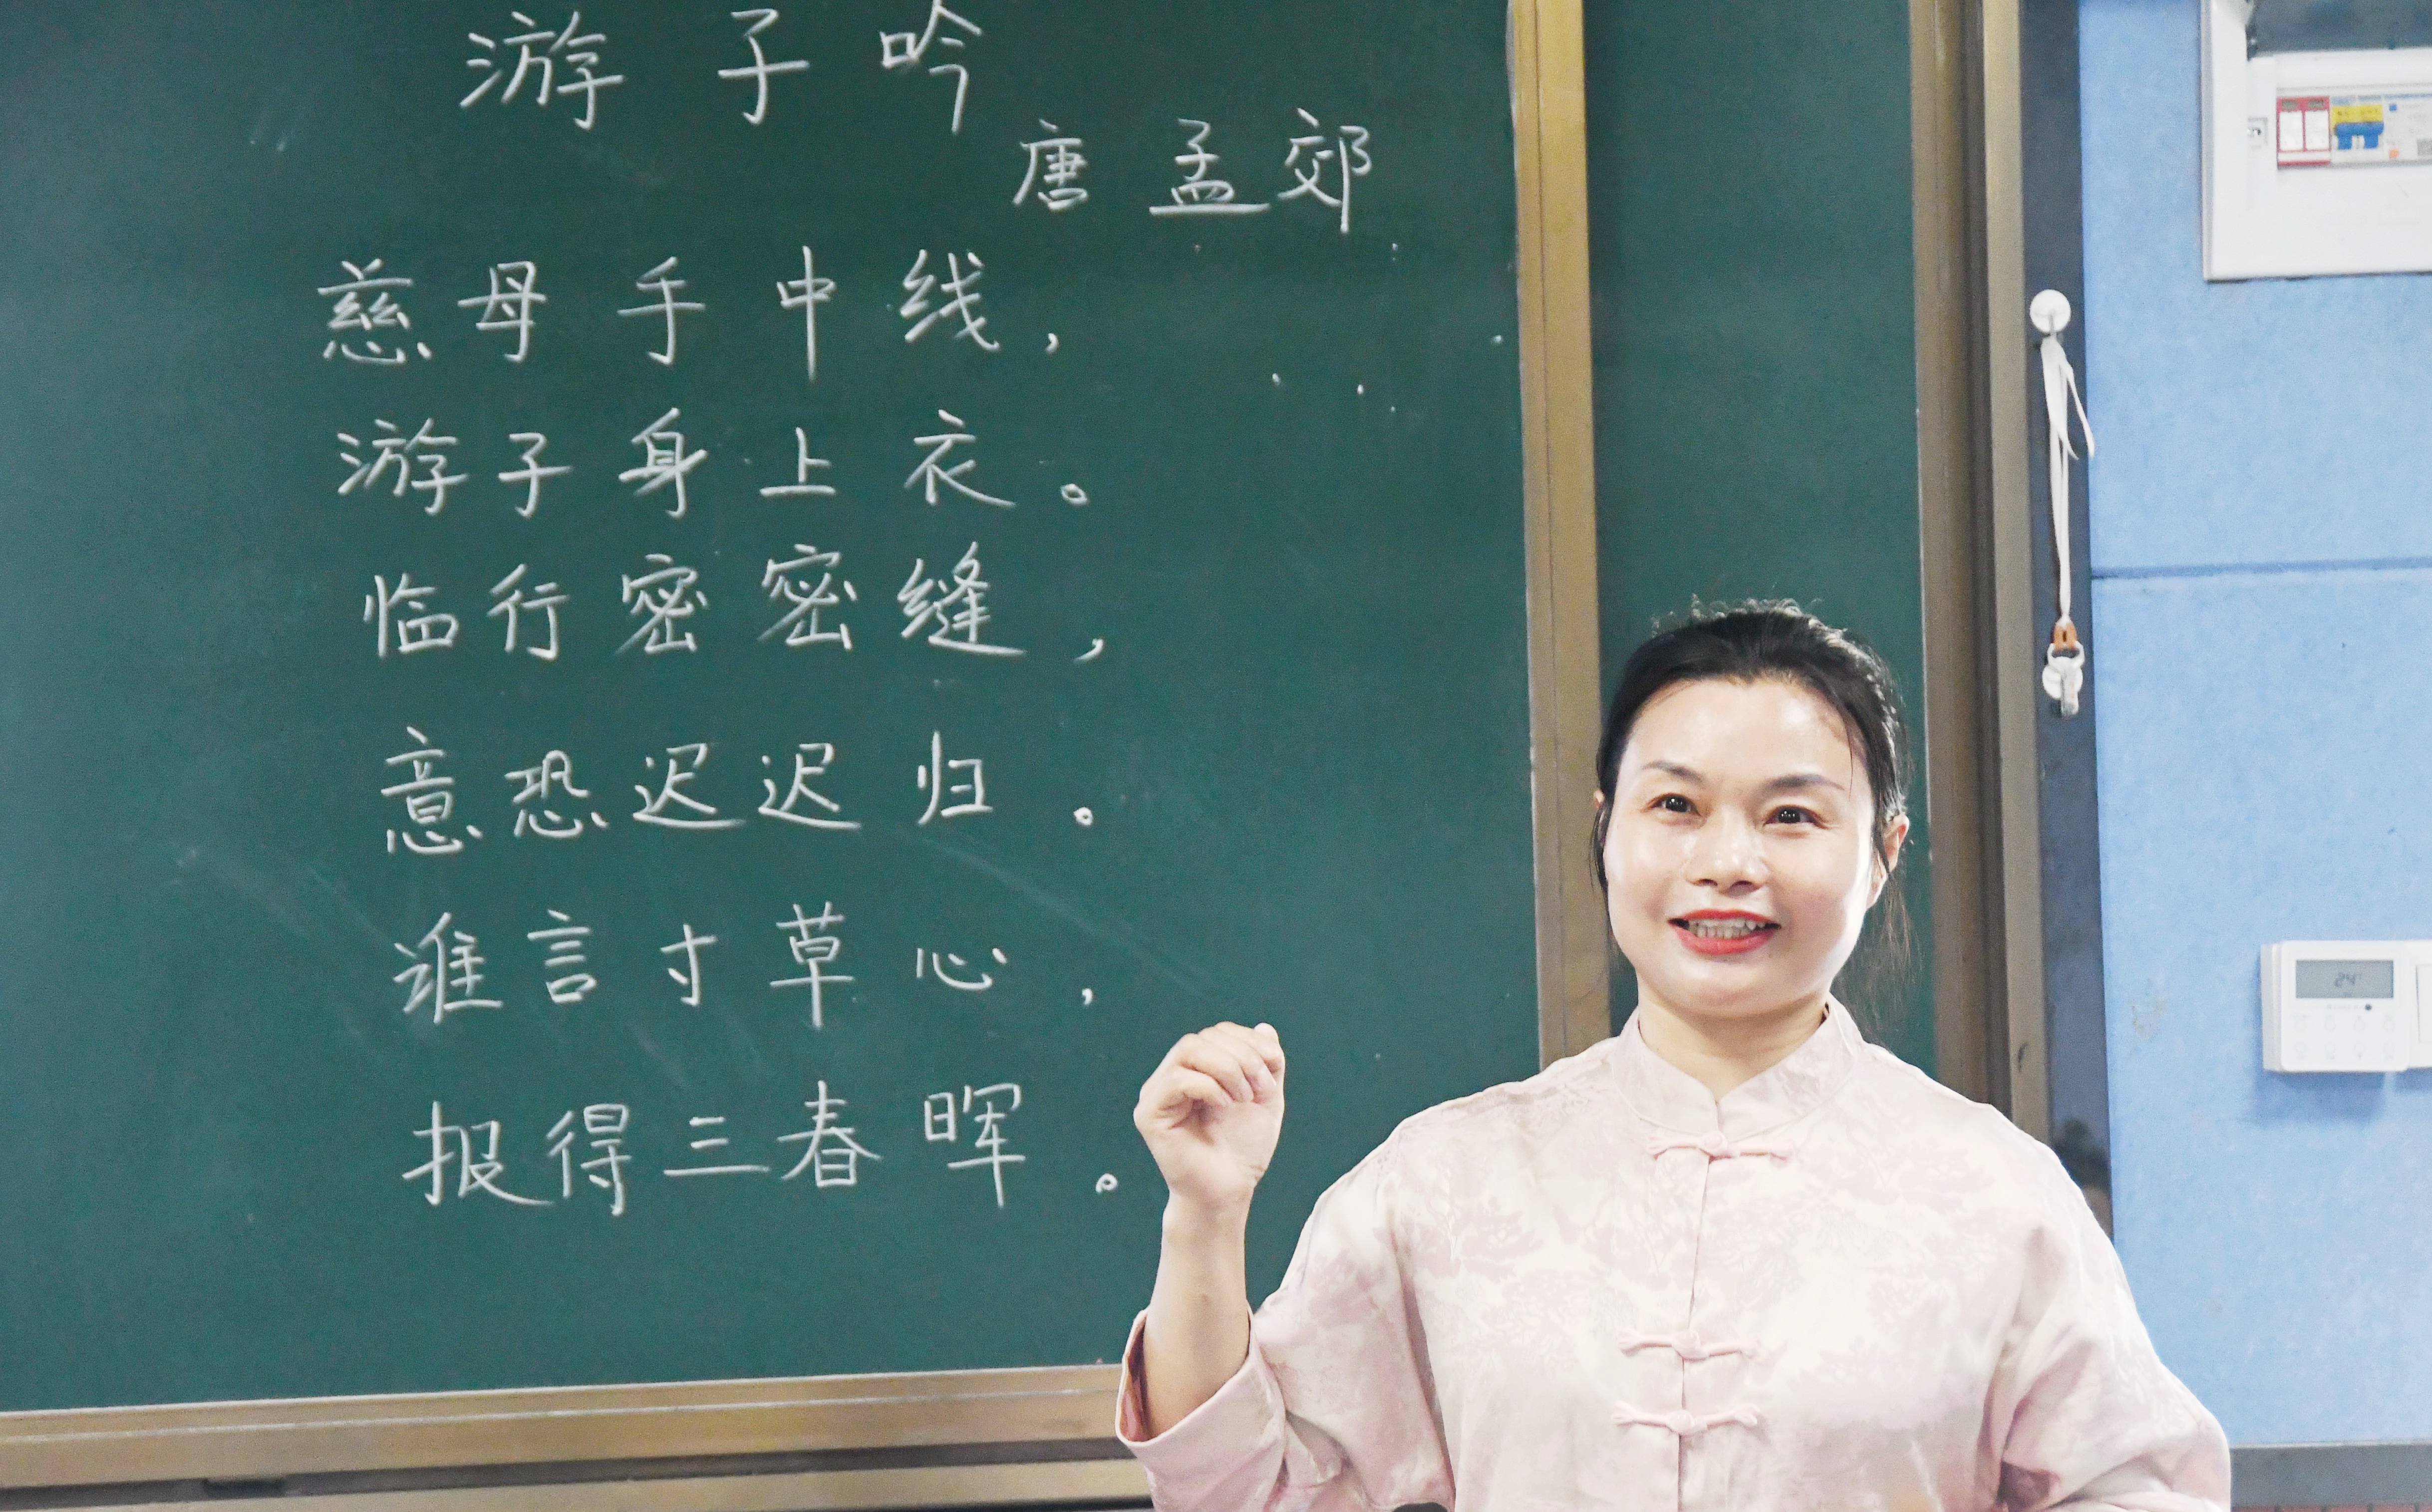 游子吟
唐 孟郊
慈母手中线，
游子身上衣。
临行密密缝，
意恐迟迟归。
谁言寸草心，
报得三春晖。
24°